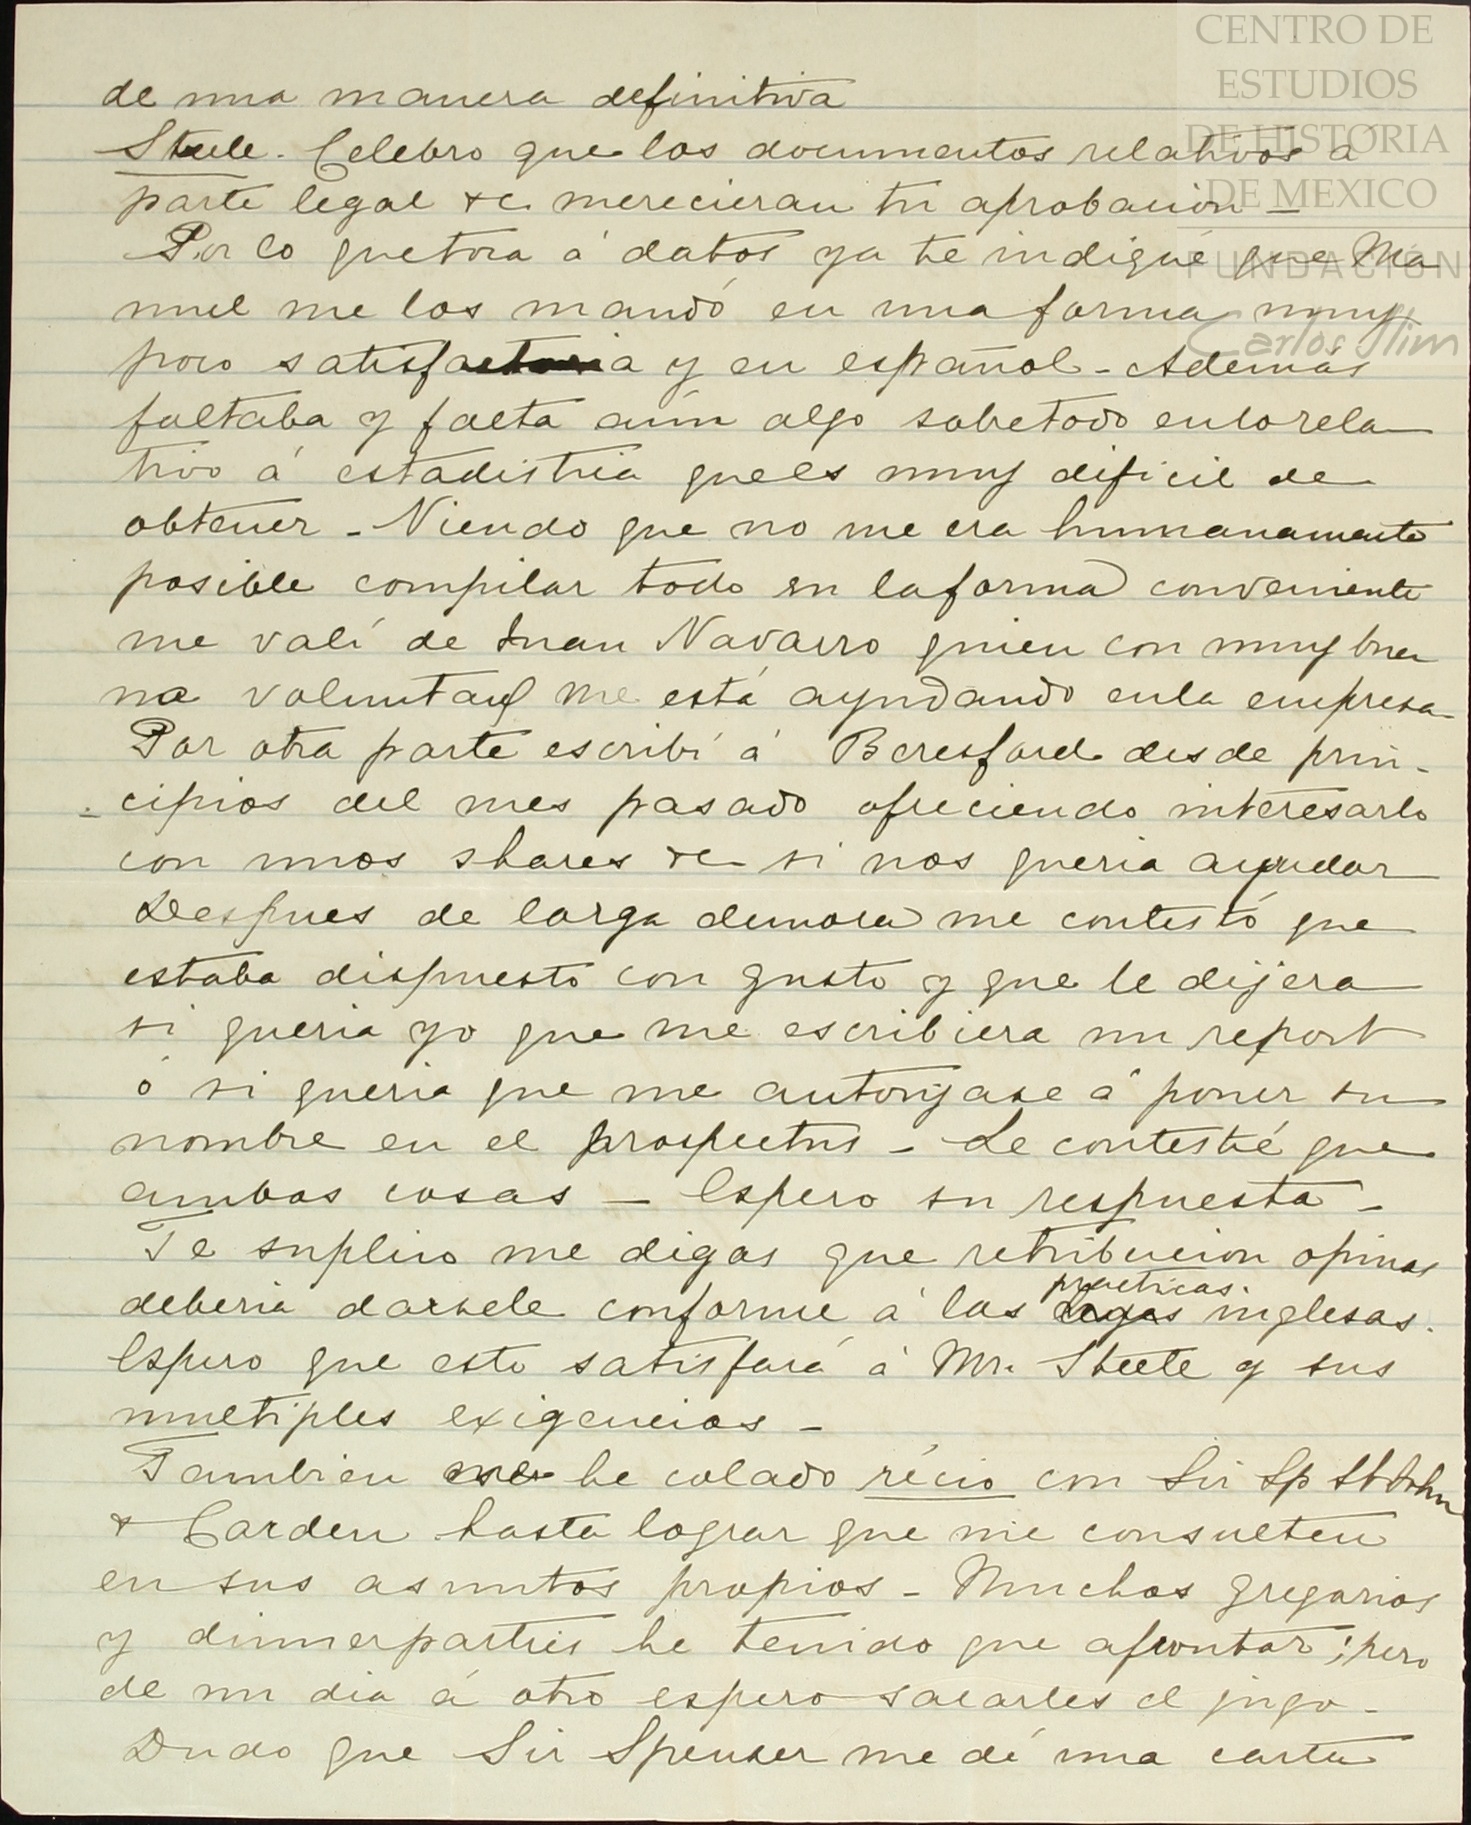 CENTRO DE
ESTUDIOS
DE HISTORIA
DE MEXICO
FUNDACIÓN
Carlos Slim
de una manera definitiva
Steele. Celebro que los documentos relativos a
parte legal &c merecieran tu aprobación –
Por lo que toca á datos ya te indiqué que Ma
nuel me los mandó en una forma muy
poco satisfactoria y en español – Además
faltaba y falta aún algo sobretodo en lo rela
tivo á estadistica que es muy dificil de
obtener – Viendo que no me era humanamente
posible compilar todo en la forma conveniente
me valí de Juan Navarro quien con muy bue
na voluntad me está ayudando en la empresa
Por otra parte escribí á Beresford desde prin-
cipios del mes pasado ofreciendo interesarlo
con unos shares &c si nos queria ayudar
Despues de larga demora me contestó que
estaba dispuesto con gusto y que le dijera
si queria yo que me escribiera un report
ó si queria que me autorizase á poner su
nombre en el prospectus – Le contesté que
ambas cosas – Espero su respuesta –
Te suplico me digas que retribucion opinas
deberia darsele conforme á las practicas inglesas.
Espero que esto satisfará á Mr. Steele y sus
multiples exigencias –
Tambien me he colado récio con Sir Sp St John
& Carden hasta lograr que me consulten
en sus asuntos propios – Muchos gregarios
y dinnerparties he tenido que afrontar; pero
de un dia á otro espero sacarles el jugo –
Dudo que Sir Spenser me dé una carta